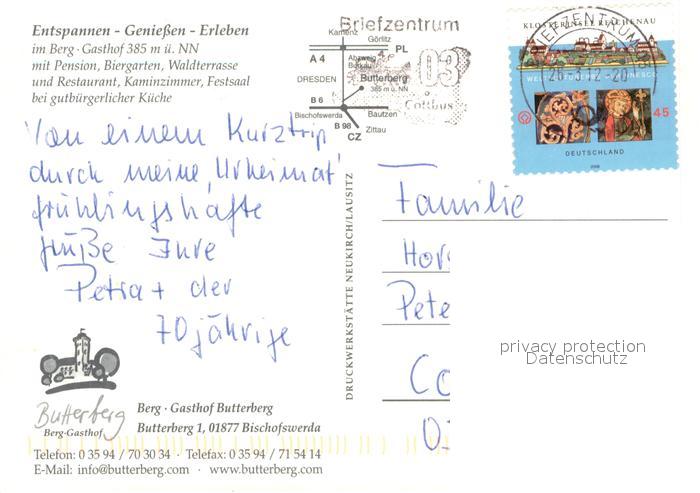 Entspannen - Genießen - Erleben
im Berg · Gasthof 385 m ü. NN
mit Pension, Biergarten, Waldterrasse
und Restaurant, Kaminzimmer, Festsaal
bei gutbürgerlicher Küche
Briefzentrum
03
Cottbus
Kamenz
Görlitz
A 4
4
PL
Abzweig
Burkau
DRESDEN
Butterberg
385 m ü. NN
B 6
Bischofswerda
Bautzen
B 98
Zittau
CZ
KLOSTERINSEL REICHENAU
BRIEFZENTRUM 03
45
DEUTSCHLAND
2008
Von einem Kurztrip
durch meine 'Urheimat'
frühlingshafte
Grüße Ihre
Petra + der
70jährige
Familie
Hor
Pete
Co
0
privacy protection
Datenschutz
DRUCKWERKSTÄTTE NEUKIRCH/LAUSITZ
Butterberg
Berg-Gasthof
Berg · Gasthof Butterberg
Butterberg 1, 01877 Bischofswerda
Telefon: 0 35 94 / 70 30 34 · Telefax: 0 35 94 / 71 54 14
E-Mail: info@butterberg.com · www.butterberg.com